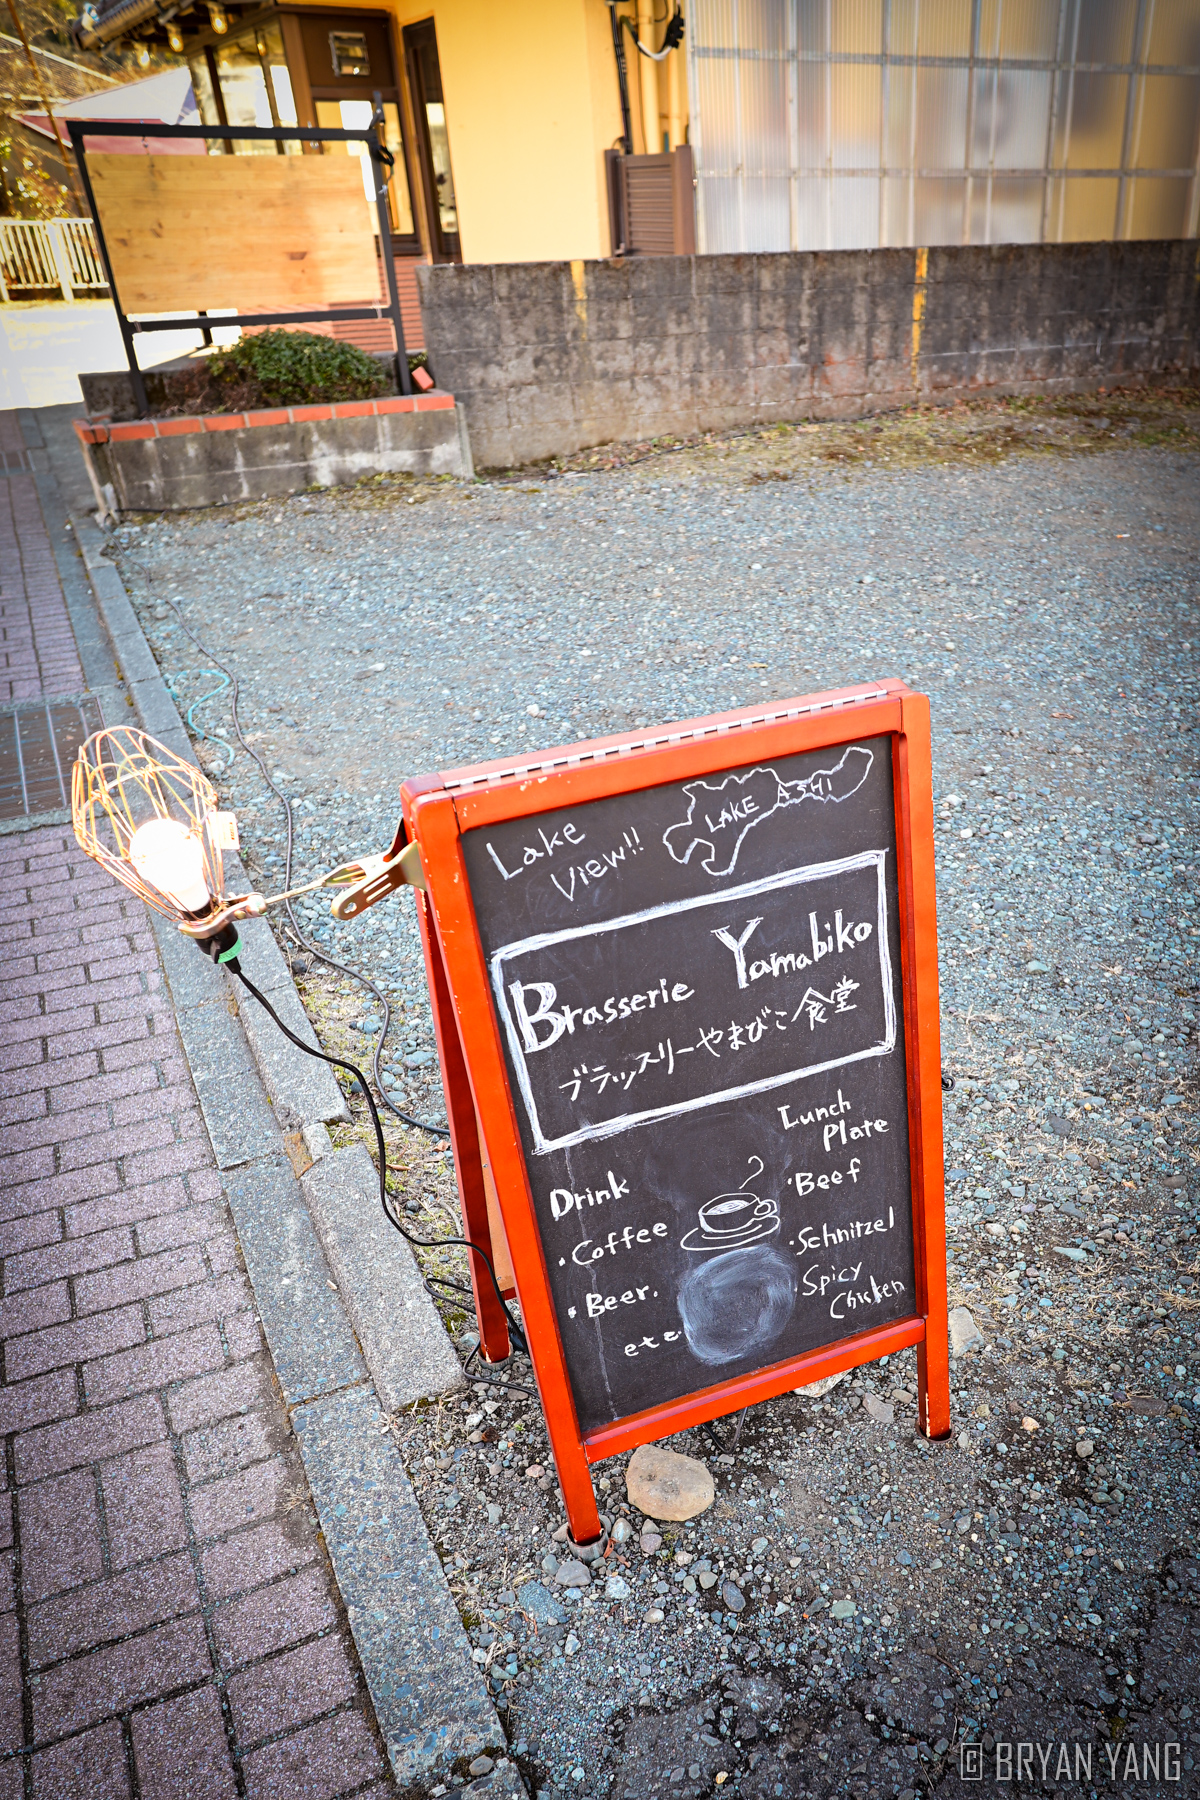 Lake
View!!
LAKE ASHI
Brasserie Yamabiko
ブラッスリーやまびこ食堂
Drink
・Coffee
・Beer.
etc.
Lunch
Plate
・Beef
・Schnitzel
・Spicy
Chicken
© BRYAN YANG